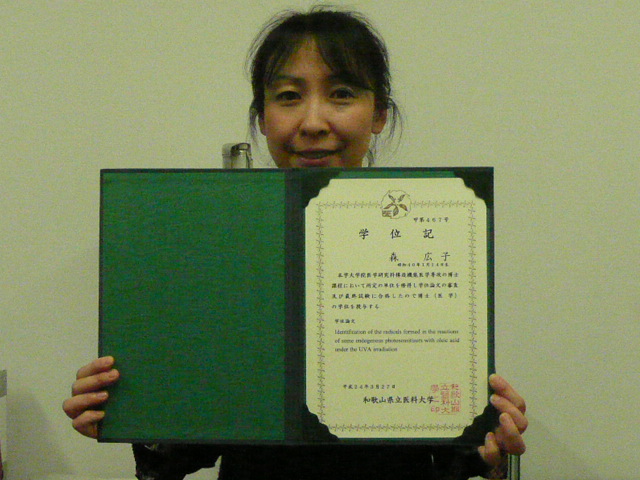 甲第467号
学位記
森 広子
本学大学院医学研究科構造機能医学専攻の博士
課程において所定の単位を修得し学位論文の審査
及び最終試験に合格したので博士（医学）
の学位を授与する
学位論文
Identification of the radicals formed in the reactions
of some endogenous photosensitizers with oleic acid
under the UVA irradiation
平成24年3月27日
和歌山県立医科大学